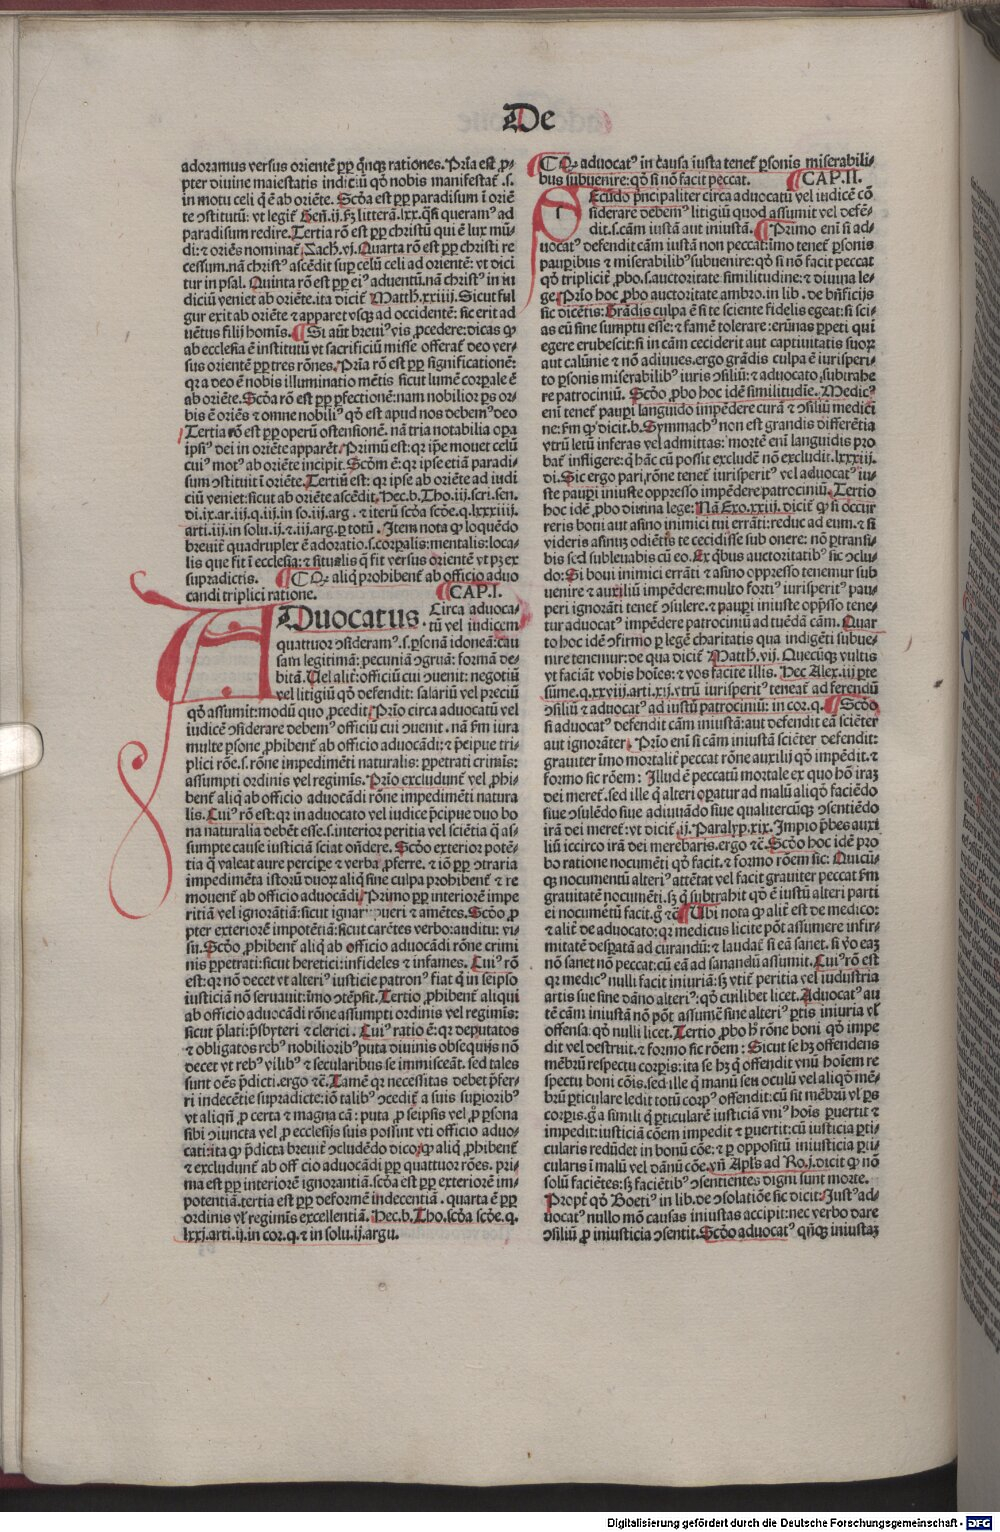 De
adoramus versus orientē ꝓpꝓ qͥnqꝫ rationes. Prīa est ꝓ-
pter diuine maiestatis indiciū qđ nobis manifestat̄ .s.
in motu celi q̄ ē ab oriēte. Scđa est ꝓpꝓ paradisum ī oriē
te ↄstitutū: vt legit̄ Geñ.ij. ẜꝫ litterā.lxx.q̄si queramꝰ ad
paradisum redire. Tertia rō est ꝓpꝓ christū qui ē lux mū-
di: ⁊ oriēs nominat̄ Zach.vj. Quarta rō est ꝓpꝓ christi re
cessum. nā christꝰ ascēdit suꝑ celū celi ad orientē: vt dici
tur in psal. Quinta rō est ꝓpꝓ eiꝰ aduentū. nā christꝰ in iu
diciū veniet ab oriēte. ita dicit̄ Matth.xxiiij. Sicut ful
gur exit ab oriēte ⁊ apparet vsqꝫ ad occidentē: sic erit ad
uētus filij homīs. Si aūt breuiꝰ vis ꝓcedere: dicas ꝙ
ab ecclesia ē institutū vt sacrificiū misse offerat̄ deo ver-
sus orientē ꝓpꝓ tres rōnes. Prīa rō est ꝓpꝓ significationē:
qꝛ a deo ē nobis illuminatio mētis sicut lumē corꝑale ē
ab oriēte. Scđa rō est ꝓpꝓ ꝑfectionē: nam nobilior ꝑs or-
bis ē oriēs ⁊ omne nobiliꝰ qđ est apud nos debemꝰ deo
Tertia rō est ꝓpꝓ operū ostensionē. nā tria notabilia oꝑa
ipsiꝰ dei in oriēte apparēt. Primū est: qꝛ ip̄e mouet celū
cuiꝰ motꝰ ab oriēte incipit. Scđm ē: qꝛ ipse etiā paradi-
sum ↄstituit ī oriēte. Tertiū est: qꝛ ipse ab oriēte ad iudi
ciū veniet: sicut ab oriēte ascēdit. Hec.b. Tho.iij.scri.sen.
di.ix.ar.iij.q.iij.in so.iij.arg. ⁊ iterū scđa scđe.q.lxxxiiij.
arti.iij. in solu.ij.⁊.iij.arg.ꝑ totū. Item nota ꝙ loquēdo
breuit̄ quadruplex ē adoratio.s. corꝑalis: mentalis: loca-
lis que fit ī ecclesia: ⁊ situalis q̄ fit versus orientē vt pꝫ ex
supradictis. CQꝫ aliq̄ prohibent̄ ab officio aduo
candi triplici ratione. CAP.I.
ADuocatus. Circa aduoca-
tū vel iudicem
quattuor ↄsideramꝰ.s.ꝑsonā idoneā: cau
sam legitimā: pecuniā ↄgruā: formā de-
bitā. Uel alit̄: officiū cui ↄuenit: negotiū
vel litigiū qđ defendit: salariū vel preciū
qđ assumit: modū quo ꝓcedit. Prīo circa aduocatū vel
iudicē ↄsiderare debemꝰ officiū cui ↄuenit. nā ẜm iura
multe ꝑsone ꝓhibent̄ ab officio aduocādi: ⁊ p̄cipue tri-
plici rōe.s.rōne impedimēti naturalis: ꝑpetrati crimīs:
assumpti ordinis vel regimīs. Prīo excludunt̄ vel ꝓhi-
bent̄ aliq̄ ab officio aduocādi rōne impedimēti natura
lis. Cuiꝰ rō est: qꝛ in aduocato vel iudice p̄cipue duo bo
na naturalia debēt esse.s. interior peritia vel sciētia q̄ as-
sumpte cause iusticiā sciat oñdere. Scđo exterior potē-
tia q̄ valeat aure percipe ⁊ verba ꝓferre. ⁊ iō ꝓpꝓ ↄtraria
impedimēta istorū duoꝝ aliq̄ sine culpa prohibent̄ ⁊ re
mouent̄ ab officio aduocādi. Primo ꝓpꝓ interiorē impe
ritiā vel ignorātiā: sicut ignari pueri ⁊ amētes. Scđo ꝓ
pter exteriorē impotētiā: sicut carētes verbo: auditu: vi-
su. Scđo ꝓhibent̄ aliq̄ ab officio aduocādi rōne crimi
nis ꝑpetrati: sicut heretici: infideles ⁊ infames. Cuiꝰ rō
est: qꝛ nō decet vt alteriꝰ iusticie patronꝰ fiat q̄ in seipso
iusticiā nō seruauit: īmo ↄtēpsit. Tertio ꝓhibent̄ aliqui
ab officio aduocādi rōne assumpti ordinis vel regimīs:
sicut p̄lati: p̄sbyteri ⁊ clerici. Cuiꝰ ratio ē: qꝛ deputatos
⁊ obligatos rebꝰ nobilioribꝰ puta diuinis obsequijs nō
decet vt rebꝰ vilibꝰ ⁊ secularibus se immisceāt. sed tales
sunt oēs p̄dicti. ergo ⁊c̄. Tamē qꝛ necessitas debet p̄fer-
ri indecētie supradicte: iō talibꝰ ↄcedit̄ a suis superioribꝰ
vt aliqñ ꝓ certa ⁊ magna cā: puta ꝓ seipsis vel ꝓ ꝑsona
sibi ↄiuncta vel ꝓ ecclesijs suis possunt vti officio aduo-
cati: ita ꝙ p̄dicta breuit̄ ↄcludēdo dico: ꝙ aliq̄ ꝓhibent̄
⁊ excludunt̄ ab off cio aduocādi ꝓpꝓ quattuor rōes. pri-
ma est ꝓpꝓ interiorē ignorantiā. scđa est ꝓpꝓ exteriorē im-
potentiā. tertia est ꝓpꝓ deformē indecentiā. quarta ē ꝓpꝓ
ordinis vꝉ regimīs excellentiā. Hec.b. Tho. scđa scđe.q.
lxxj.arti.ij.in cor.q.⁊ in solu.ij.argu.
CQꝫ aduocatꝰ in causa īiusta tenet̄ ꝑsonis miserabili-
bus subuenire: qđ si nō facit peccat. CAP.II.
SEcūdo p̄ncipaliter circa aduocatū vel iudicē cō
siderare debemꝰ litigiū quod assumit vel defē-
dit.s.cām iustā aut iniustā. Primo eni si ad-
uocatꝰ defendit cām iustā non peccat: īmo tenet̄ ꝑsonis
pauꝑibus ⁊ miserabilibꝰ subuenire: qđ si nō facit peccat
qđ tripliciť ꝓbo.s.auctoritate: similitudine: ⁊ diuina le-
ge. Prīo hoc ꝓbo auctoritate ambro. in lib. de bn̄ficijs
sic dicētis: Grādis culpa ē si te sciente fidelis egeat: si sci-
as eū sine sumptu esse: ⁊ famē tolerare: erūnas ꝑpeti qui
egere erubescit: si in cām ceciderit aut captiuitatis suoꝝ
aut calūnie ⁊ nō adiuues. ergo grādis culpa ē iurisperi-
to ꝑsonis miserabilibꝰ iuris ↄsiliū: ⁊ aduocato subtrahe
re patrociniū. Scđo ꝓbo hoc idē similitudīe. Medicꝰ
eni tenet̄ pauꝑi languido impēdere curā ⁊ ↄsiliū medici
ne: ẜm ꝙ dicit.b. Symmachꝰ non est grandis differētia
vtrū letū inferas vel admittas: mortē eni languidis pro
bat̄ infligere: q̄ hāc cū possit excludē nō excludit.lxxxiij.
di. Sic ergo pari rōne tenet̄ iurisperitꝰ vel aduocatꝰ iu-
ste pauꝑi iniuste oppresso impēdere patrociniū. Tertio
hoc idē ꝓbo diuina lege: Nā Exo.xxiij. dicit̄ ꝙ si occur
reris boui aut asino inimici tui errāti: reduc ad eum. ⁊ si
videris asinū odiētis te cecidisse sub onere: nō ꝑtransi-
bis sed subleuabis cū eo. Ex q̄bus auctoritatibꝰ sic ↄclu-
do: Si boui inimici errāti ⁊ asino oppresso tenemur sub
uenire ⁊ auxiliū impēdere: multo fortiꝰ iurisperitꝰ pau-
peri ignorāti tenet̄ ↄsulere: ⁊ pauꝑi iniuste opp̄sso tene-
tur aduocatꝰ impēdere patrociniū ad tuēdā cām. Quar
to hoc idē ↄfirmo ꝑ legē charitatis qua indigēti subue-
nire tenemur: de qua dicit̄ Matth.vij. Quecūqꝫ vultis
vt faciāt vobis hoīes: ⁊ vos facite illis. Hec Alex.iij ꝑte
sūme.q.xxviij.arti.xij.vtrū iurisperitꝰ teneat̄ ad ferendū
ↄsiliū ⁊ aduocatꝰ ad iustū patrociniū: in cor.q. Scđo
si aduocatꝰ defendit cām iniustā: aut defendit eā sciēter
aut ignorāter. Prīo eni si cām iniustā sciēter defendit:
grauiter īmo mortaliť peccat rōne auxilij qđ impēdit. ⁊
formo sic rōem: Illud ē peccatū mortale ex quo hō iraꝫ
dei meret̄. sed ille q̄ alteri oꝑatur ad malū aliqđ faciēdo
siue ↄsulēdo siue adiuuādo siue qualitercūqꝫ ↄsentiēdo
irā dei meret̄: vt dicit̄ .ij. Paralyp.xix. Impio p̄bes auxi
liū: iccirco irā dei merebaris. ergo ⁊c̄. Scđo hoc idē pro
bo ratione nocumēti qđ facit. ⁊ formo rōem sic: Quicū-
qꝫ nocumentū alteriꝰ attētat vel facit grauiter peccat ẜm
grauitatē nocumēti. ẜꝫ q̄ subtrahit qđ ē iustū alteri parti
ei nocumētū facit. gͦ ⁊c̄. Ubi nota ꝙ alit̄ est de medico:
⁊ alit̄ de aduocato: qꝛ medicus licite pōt assumere infir-
mitatē desꝑatā ad curandū: ⁊ laudat̄ si eā sanet. si v̄o eaꝫ
nō sanet nō peccat: cū eā ad sanandū assumit. Cuiꝰ rō est
qꝛ medicꝰ nulli facit iniuriā: ẜꝫ vtit̄ peritia vel iudustria
artis sue sine dāno alteriꝰ: qđ cuilibet licet. Aduocatꝰ au
tē cām iniustā nō pōt assumē sine alteriꝰ ꝑtis iniuria vꝉ
offensa. qđ nulli licet. Tertio ꝓbo hͦ rōne boni qđ impe
dit vel destruit. ⁊ formo sic rōem: Sicut se hꝫ offendens
mēbrū respectu corꝑis: ita se hꝫ q̄ offendit vnū hoīem re
spectu boni cōis. sed ille q̄ manū seu oculū vel aliqđ mē-
brū ꝑticulare ledit totū corpꝰ offendit: cū sit mēbrū vꝉ ꝑs
corꝑis. gͦ a simili q̄ ꝑticularē iusticiā vniꝰ hoīs ꝑuertit ⁊
impedit: iusticiā cōem impedit ⁊ ꝑuertit: cū iusticia ꝑti-
cularis redūdet in bonū cōe: ⁊ ꝑ oppositū iniusticia ꝑti-
cularis ī malū vel dānū cōe. vñ Apl's ad Ro.j. dicit ꝙ nō
solū faciētes: ẜꝫ faciētibꝰ ↄsentientes digni sunt morte.
Propt̄ qđ Boetiꝰ in lib. de ↄsolatiōe sic dicit: Iustꝰ ad-
uocatꝰ nullo mō causas iniustas accipit: nec verbo dare
ↄsiliū ꝓ iniusticia ↄsentit. Scđo aduocatꝰ qñqꝫ iniustaꝫ
Digitalisierung gefördert durch die Deutsche Forschungsgemeinschaft - DFG